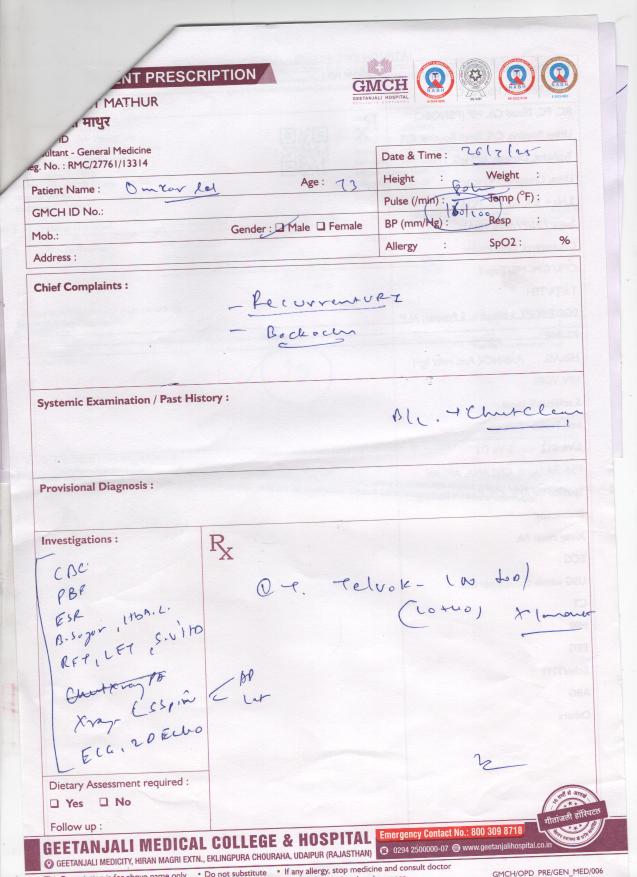 NT PRESCRIPTION
GMCH
GEETANJALI HOSPITAL
MATHUR
माथुर
ultant - General Medicine
eg. No. : RMC/27761/13314
Date & Time : 26/7/25
Patient Name : Omkar Lal Age : 73
Height : Weight :
GMCH ID No.:
Pulse (/min) : Temp (°F) :
Mob.: Gender : Male Female
BP (mm/Hg) : Resp :
Address :
Allergy : SpO2 : %
Chief Complaints :
- Recurrent URI
- Backache
Systemic Examination / Past History :
B/L Chest Clear
Provisional Diagnosis :
Investigations :
Rx
CBC
PBF
ESR
B. Sugar, HbA1c
RFT, LFT,
Chest Xray PA
Xray LS Spine AP
Lat
ECG, 2D Echo
Dietary Assessment required :
Yes No
Follow up :
गीतांजली हॉस्पिटल
GEETANJALI MEDICAL COLLEGE & HOSPITAL
Emergency Contact No.: 800 309 8718
GEETANJALI MEDICITY, HIRAN MAGRI EXTN., EKLINGPURA CHOURAHA, UDAIPUR (RAJASTHAN)
0294 2500000-07 www.geetanjalihospital.co.in
is for above name only • Do not substitute • If any allergy, stop medicine and consult doctor
GMCH/OPD_PRE/GEN_MED/006